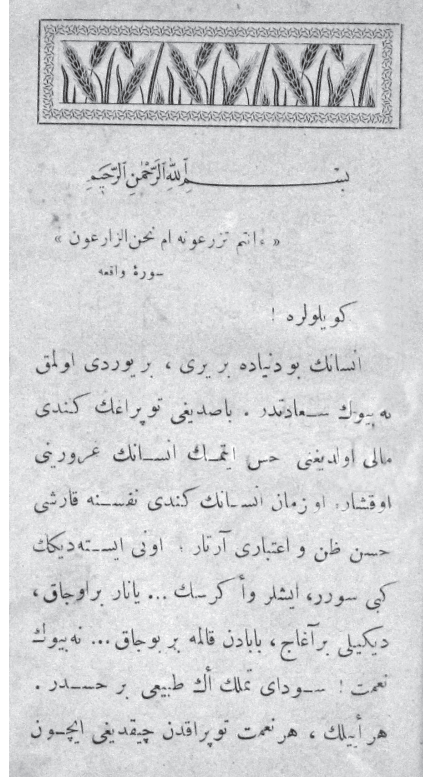 بسم الله الرحمن الرحيم
« ءانتم تزرعونه ام نحن الزارعون »
سورۀ واقعه
كويلولره !
انسانك بو دنياده بر يرى ، بر يوردى اولمق
نه بيوك سعادتدر . باصديغى طوپراغك كندى
مالى اولديغنى حس ايتمك انسانك غرورينى
اوقشار. او زمان انسانك كندى نفسنه قارشى
حسن ظن و اعتبارى آرتار . اونى ايسته‌ديكك
كبى سورر، ايشلر و أكرسك ... يانار بر اوجاق،
ديكيلى بر آغاج، بابادن قالمه بر بوجاق ... نه بيوك
نعمت ! سوداى تملك أڭ طبيعى بر حسدر .
هر أييلك ، هر نعمت طوپراقدن چيقديغى ايچون